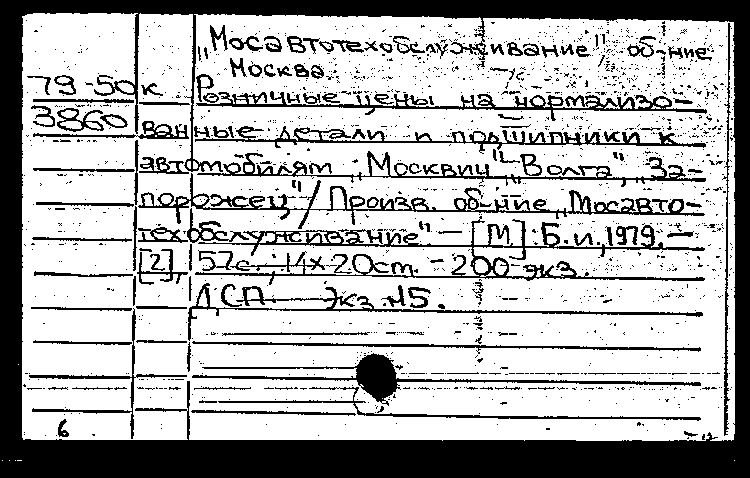 „Мосавтотехобслуживание" об-ние
Москва.
79-50к Розничные цены на нормализо-
3860 ванные детали и подшипники к
автомобилям „Москвич", „Волга", „За-
порожец" / Произв. об-ние „Мосавто-
техобслуживание" - [М]: Б.и., 1979. -
[2], 57с.; 14х20см. - 200 экз.
ДСП. Экз. №5.
6